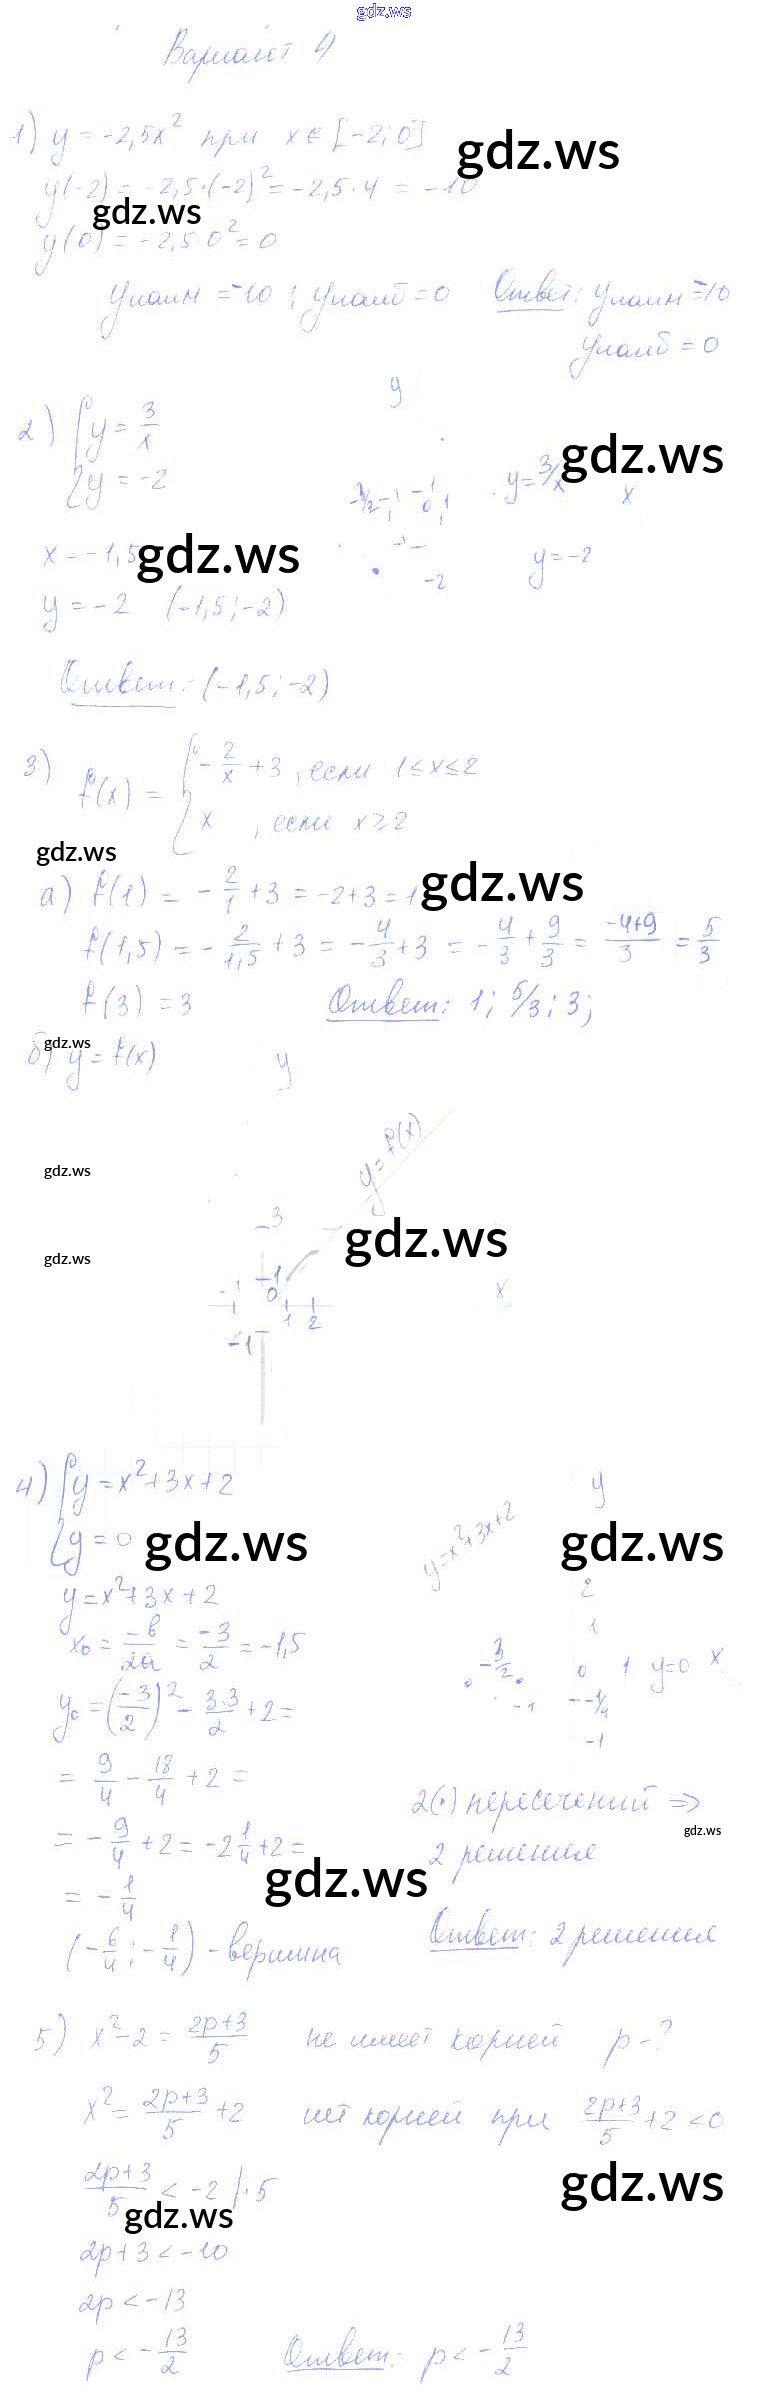 gdz.ws
Вариант 4
1) y = -2,5x² при x ∈ [-2; 0]
gdz.ws
y(-2) = -2,5·(-2)² = -2,5·4 = -10
gdz.ws
y(0) = -2,5·0² = 0
yнаим = -10; yнаиб = 0 Ответ: yнаим = -10
yнаиб = 0
2) { y = 3/x
y = -2
y
gdz.ws
-3/2 -1 -1 0 1 y = 3/x x
x = -1,5
gdz.ws
y = -2 (-1,5; -2)
-2 y = -2
Ответ: (-1,5; -2)
3) f(x) = { -2/x + 3, если 1 ≤ x ≤ 2
x, если x ≥ 2
gdz.ws
а) f(1) = -2/1 + 3 = -2+3 = 1
gdz.ws
f(1,5) = -2/1,5 + 3 = -4/3 + 3 = -4/3 + 9/3 = (-4+9)/3 = 5/3
f(3) = 3 Ответ: 1; 5/3; 3;
б) y = f(x) y
gdz.ws
y = f(x)
gdz.ws
3
gdz.ws
gdz.ws
-1 1 0 1 2 x
-1
4) { y = x²+3x+2
y = 0
gdz.ws
y = x²+3x+2 y
gdz.ws
y = x²+3x+2
x₀ = -в/2а = -3/2 = -1,5
y₀ = (-3/2)² - 3·3/2 + 2 =
2
1
-3/2 -1 0 1 y=0 x
-1/4
-1
= 9/4 - 18/4 + 2 =
= -9/4 + 2 = -2 1/4 + 2 =
= -1/4
gdz.ws
(-6/4; -1/4) - вершина
2(·) пересечений ⇒
gdz.ws
2 решения
Ответ: 2 решения
5) x² - 2 = (2p+3)/5 не имеет корней p - ?
x² = (2p+3)/5 + 2 нет корней при (2p+3)/5 + 2 < 0
(2p+3)/5 < -2 |·5
gdz.ws
gdz.ws
2p + 3 < -10
2p < -13
p < -13/2 Ответ: p < -13/2